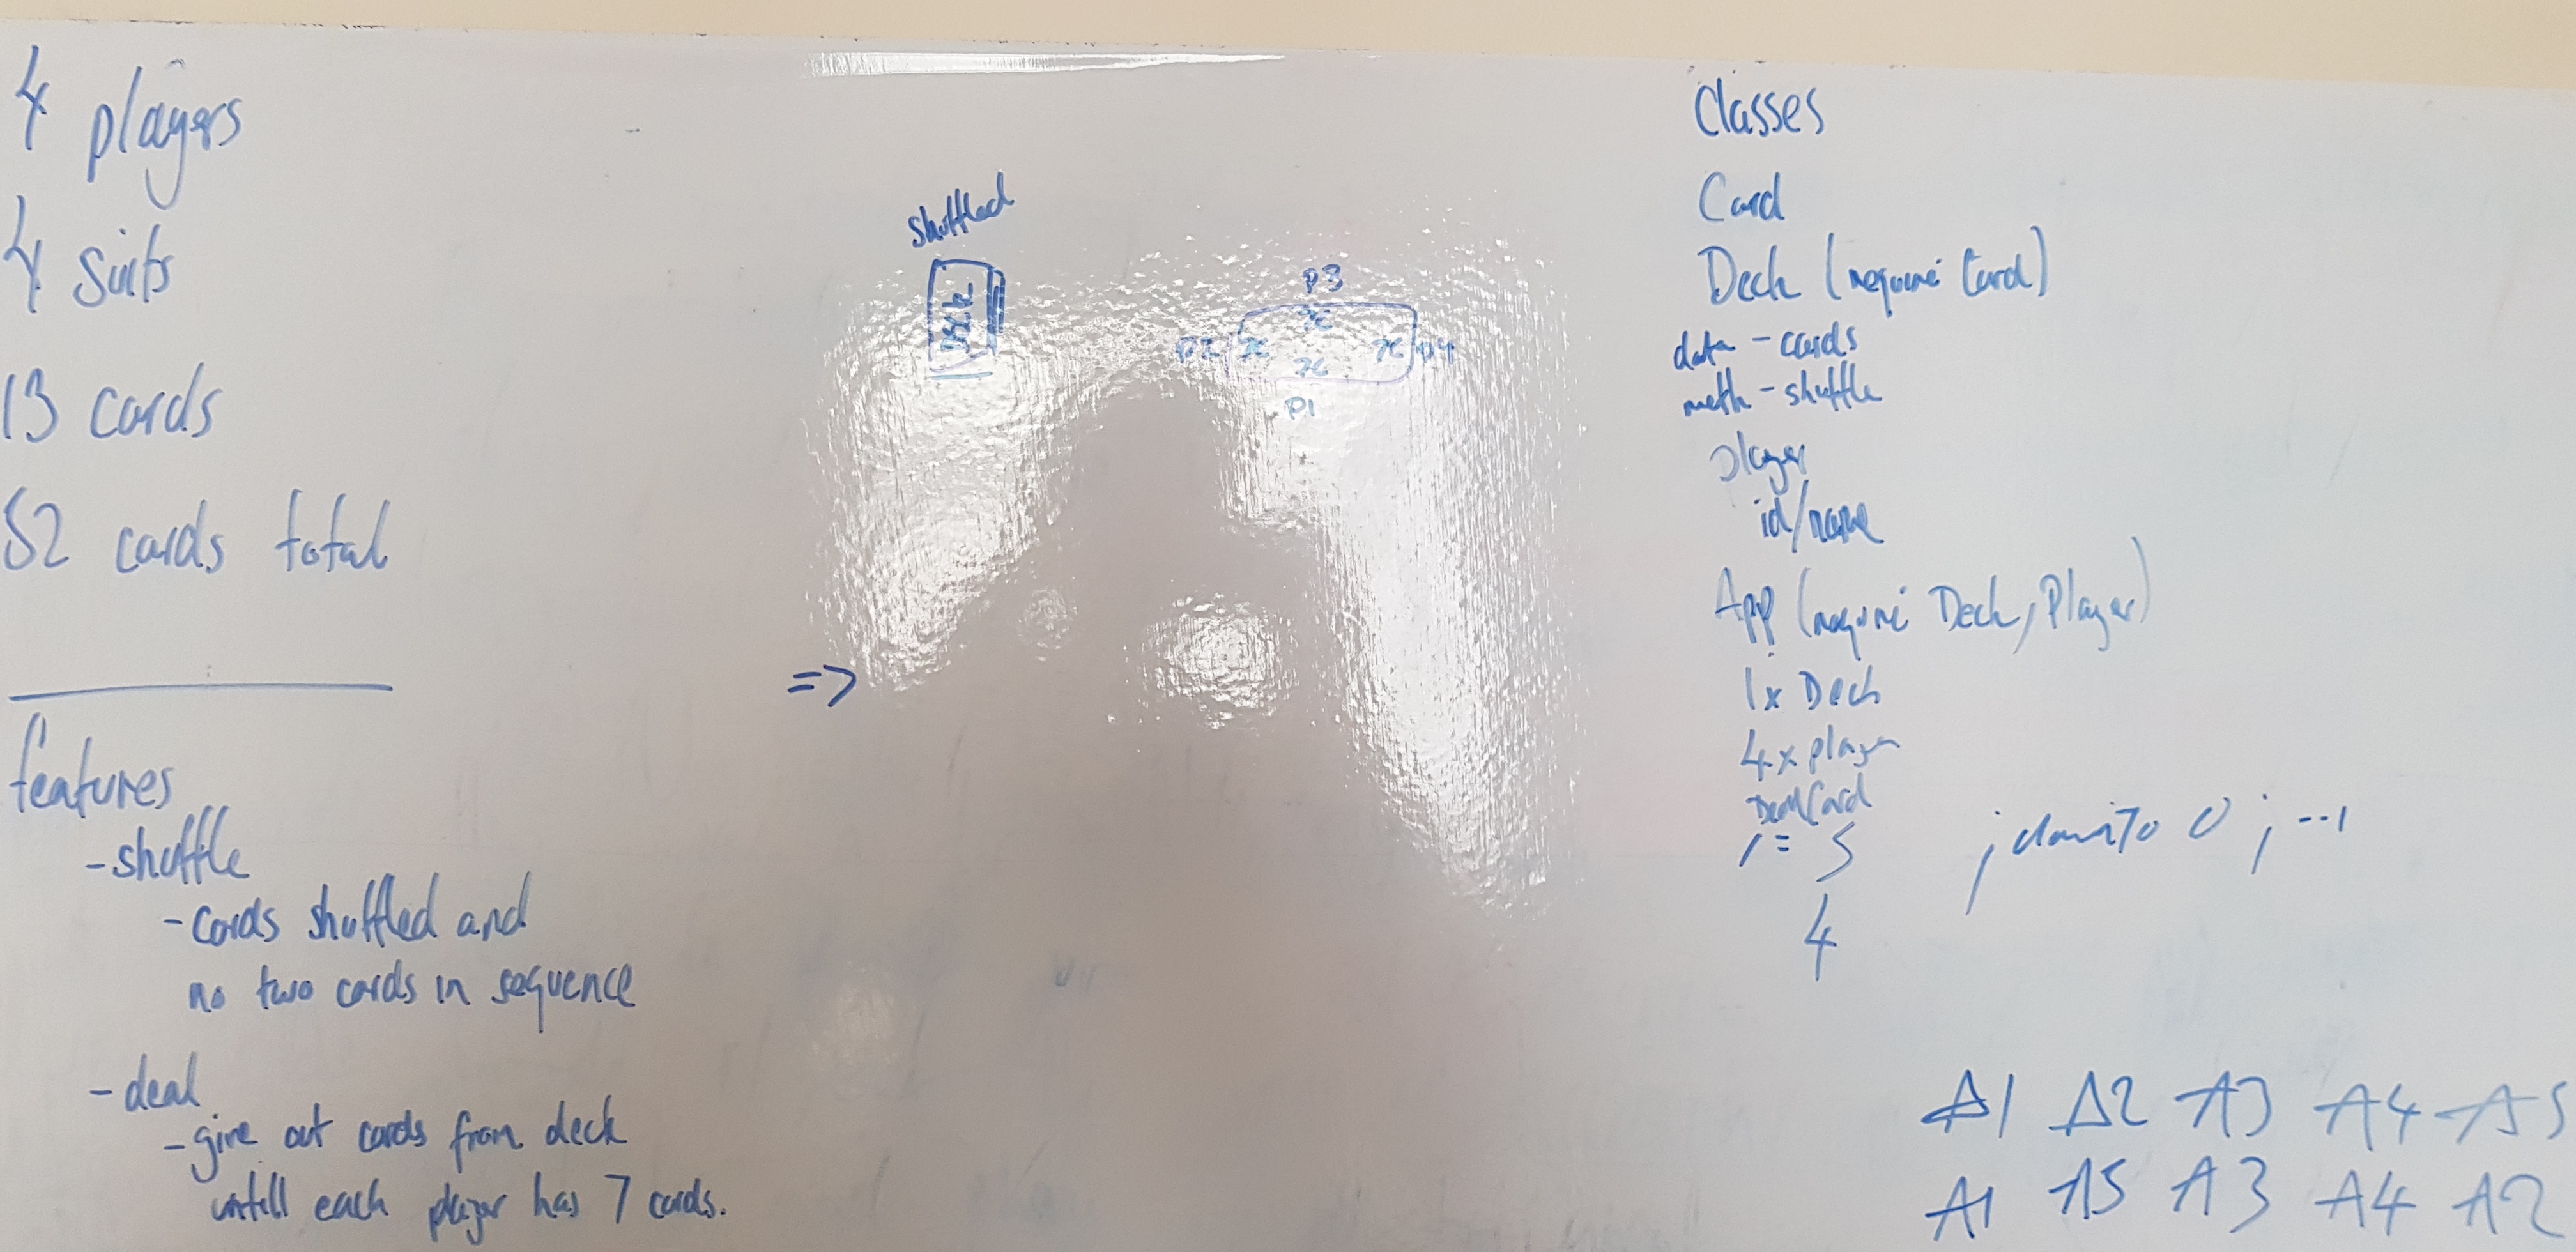 4 players
4 suits
13 cards
52 cards total
features
- shuffle
- cards shuffled and
no two cards in sequence
- deal
- give out cards from deck
untill each player has 7 cards.
shuffled
Deck
P3
x
P2 x x P4
x
P1
=>
Classes
Card
Deck (require Card)
data - cards
meth - shuffle
player
id/name
App (require Deck, Player)
1x Deck
4x player
DealCard
i = 5 ; down to 0 ; --i
4
A1 A2 A3 A4 A5
A1 A5 A3 A4 A2